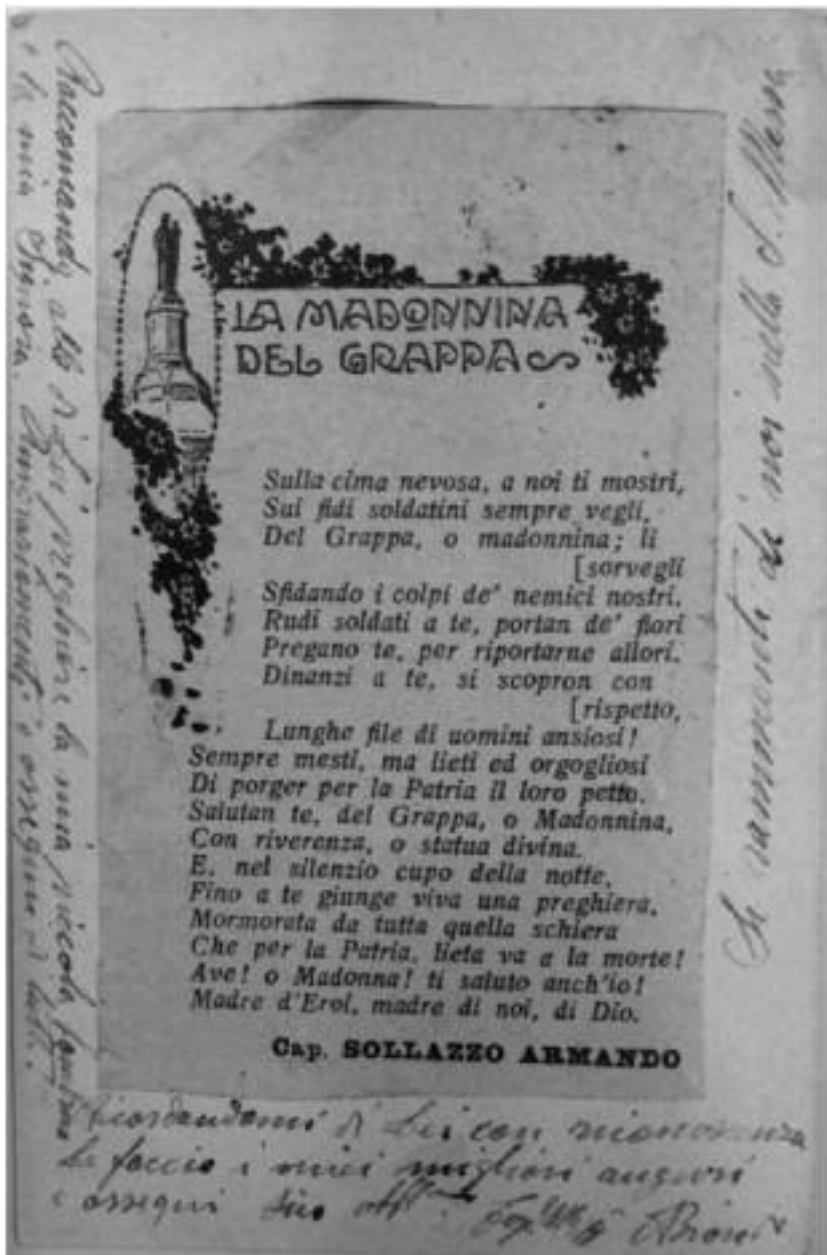 LA MADONNINA
DEL GRAPPA
Sulla cima nevosa, a noi ti mostri,
Sui fidi soldatini sempre vegli,
Del Grappa, o madonnina; li
[sorvegli
Sfidando i colpi de' nemici nostri.
Rudi soldati a te, portan de' fiori
Pregano te, per riportarne allori.
Dinanzi a te, si scopron con
[rispetto,
Lunghe file di uomini ansiosi!
Sempre mesti, ma lieti ed orgogliosi
Di porger per la Patria il loro petto.
Salutan te, del Grappa, o Madonnina,
Con riverenza, o statua divina.
E, nel silenzio cupo della notte,
Fino a te giunge viva una preghiera,
Mormorata da tutta quella schiera
Che per la Patria, lieta va a la morte!
Ave! o Madonna! ti saluto anch'io!
Madre d'Eroi, madre di noi, di Dio.
Cap. SOLLAZZO ARMANDO
Ricordandomi di Lei con riconoscenza
Le faccio i miei migliori auguri
e ossequi suo
Raccomando alle di Lei preghiere la mia piccola
e la mia Signora. e ossequi a tutti.
Si rammenti di noi nella S. Messa